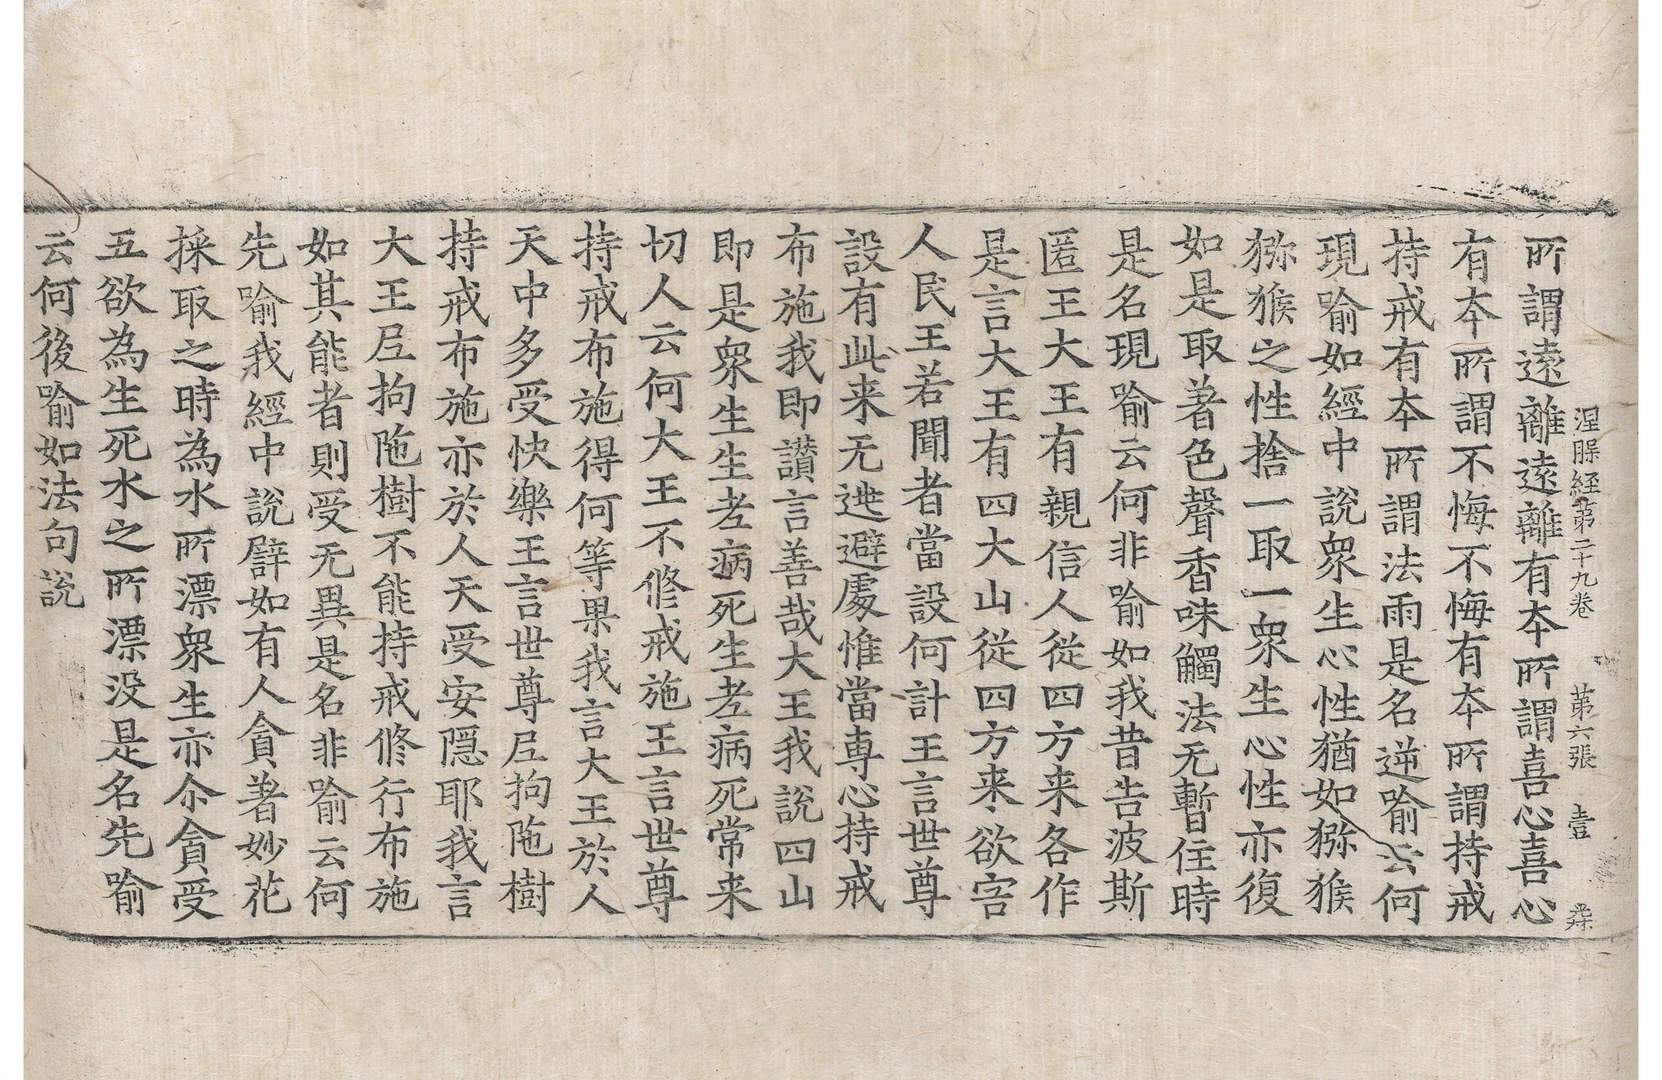 涅槃経第二十九卷 第六張 壹
所謂遠離遠離有夲所謂喜心喜心
有夲所謂不悔不悔有夲所謂持戒
持戒有夲所謂法雨是名逆喻云何
現喻如經中說衆生心性猶如猕猴
猕猴之性捨一取一衆生心性亦復
如是取著色聲香味觸法无暫住時
是名現喻云何非喻如我昔告波斯
匿王大王有親信人從四方来各作
是言大王有四大山從四方来欲害
人民王若聞者當設何計王言世尊
設有此来无逃避處惟當專心持戒
布施我即讃言善哉大王我說四山
即是衆生生老病死生老病死常来
切人云何大王不修戒施王言世尊
持戒布施得何等果我言大王於人
天中多受快樂王言世尊尼拘陁樹
持戒布施亦於人天受安隱耶我言
大王尼拘陁樹不能持戒修行布施
如其能者則受无異是名非喻云何
先喻我經中說譬如有人貪著妙花
採取之時為水所漂衆生亦尒貪受
五欲為生死水之所漂没是名先喻
云何後喻如法句說